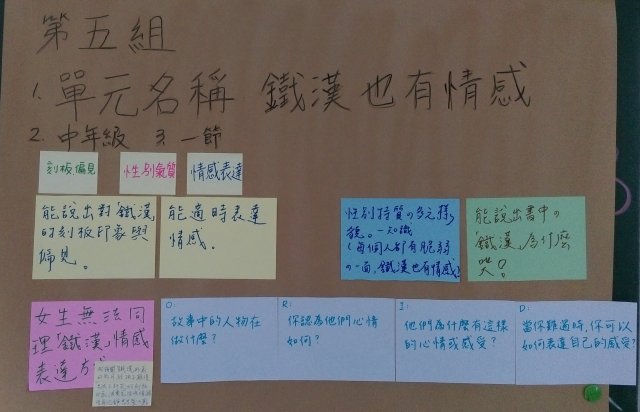 第五組
1. 單元名稱 鐵漢也有情感
2. 中年級 3. 一節
刻板偏見
性別氣質
情感表達
能說出對「鐵漢
的刻板印象與
偏見。
能適時表達
情感。
性別特質の多元樣
貌。-知識
(每個人都有脆弱
の一面,鐵漢也有情感)
能說出書中の
「鐵漢」為什麼
哭?
女生無法同
理「鐵漢」情感
表達方
O:
故事中的人物在
做什麼?
R:
你認為他們心情
如何?
I:
他們為什麼有這樣
的心情或感受?
D:
當你難過時,你可以
如何表達自己的感受?